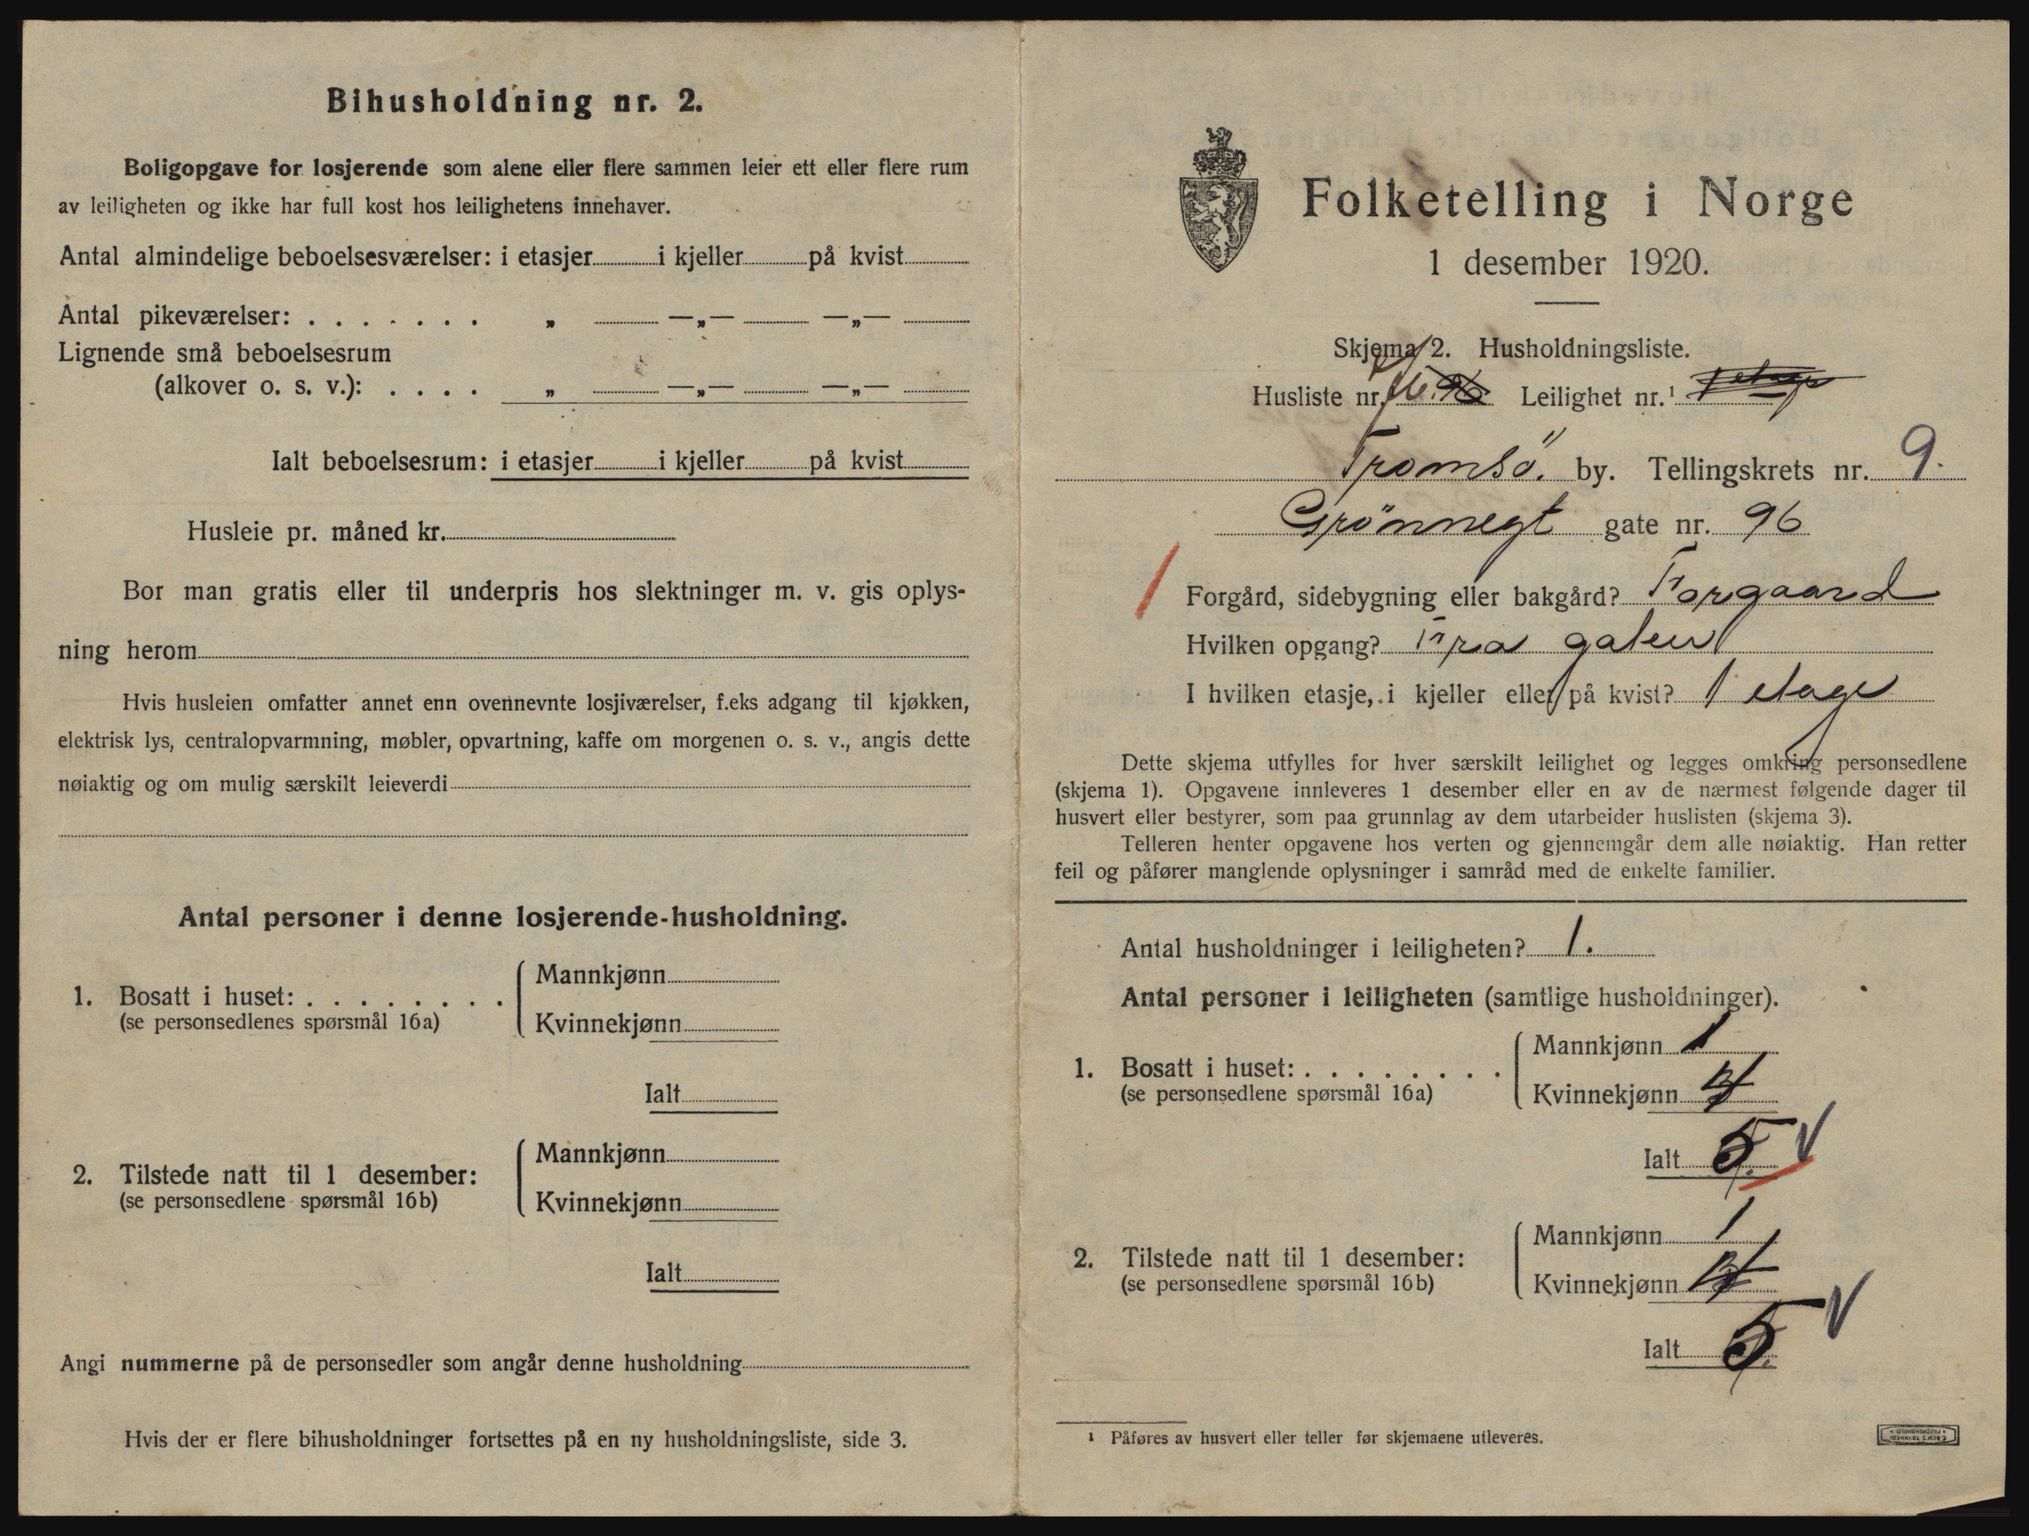 Bihusholdning nr. 2.
Boligopgave for losjerende som alene eller flere sammen leier ett eller flere rum
av leiligheten og ikke har full kost hos leilighetens innehaver.
Antal almindelige beboelsesværelser: i etasjer i kjeller på kvist
Antal pikeværelser: . . . . . . . „ —„— —„—
Lignende små beboelsesrum
(alkover o. s. v.): . . . . „ —„— —„—
Ialt beboelsesrum: i etasjer i kjeller på kvist
Husleie pr. måned kr.
Bor man gratis eller til underpris hos slektninger m. v. gis oplys-
ning herom
Hvis husleien omfatter annet enn ovennevnte losjiværelser, f.eks adgang til kjøkken,
elektrisk lys, centralopvarmning, møbler, opvartning, kaffe om morgenen o. s. v., angis dette
nøiaktig og om mulig særskilt leieverdi
Antal personer i denne losjerende-husholdning.
1. Bosatt i huset: . . . . . . . .
(se personsedlenes spørsmål 16a)
Mannkjønn
Kvinnekjønn
Ialt
2. Tilstede natt til 1 desember:
(se personsedlene spørsmål 16b)
Mannkjønn
Kvinnekjønn
Ialt
Angi nummerne på de personsedler som angår denne husholdning
Hvis der er flere bihusholdninger fortsettes på en ny husholdningsliste, side 3.
Folketelling i Norge
1 desember 1920.
Skjema 2. Husholdningsliste.
Husliste nr. 96 Leilighet nr.¹ 1 etage
Tromsö. by. Tellingskrets nr. 9.
Grönnegt gate nr. 96
Forgård, sidebygning eller bakgård? Forgaard
Hvilken opgang? Fra gaten
I hvilken etasje, i kjeller eller på kvist? 1 etage
Dette skjema utfylles for hver særskilt leilighet og legges omkring personsedlene
(skjema 1). Opgavene innleveres 1 desember eller en av de nærmest følgende dager til
husvert eller bestyrer, som paa grunnlag av dem utarbeider huslisten (skjema 3).
Telleren henter opgavene hos verten og gjennemgår dem alle nøiaktig. Han retter
feil og påfører manglende oplysninger i samråd med de enkelte familier.
Antal husholdninger i leiligheten? 1.
Antal personer i leiligheten (samtlige husholdninger).
1. Bosatt i huset: . . . . . . . .
(se personsedlene spørsmål 16a)
Mannkjønn 1
Kvinnekjønn 4
Ialt 5.
2. Tilstede natt til 1 desember:
(se personsedlene spørsmål 16b)
Mannkjønn 1
Kvinnekjønn 4
Ialt 5.
¹ Påføres av husvert eller teller før skjemaene utleveres.